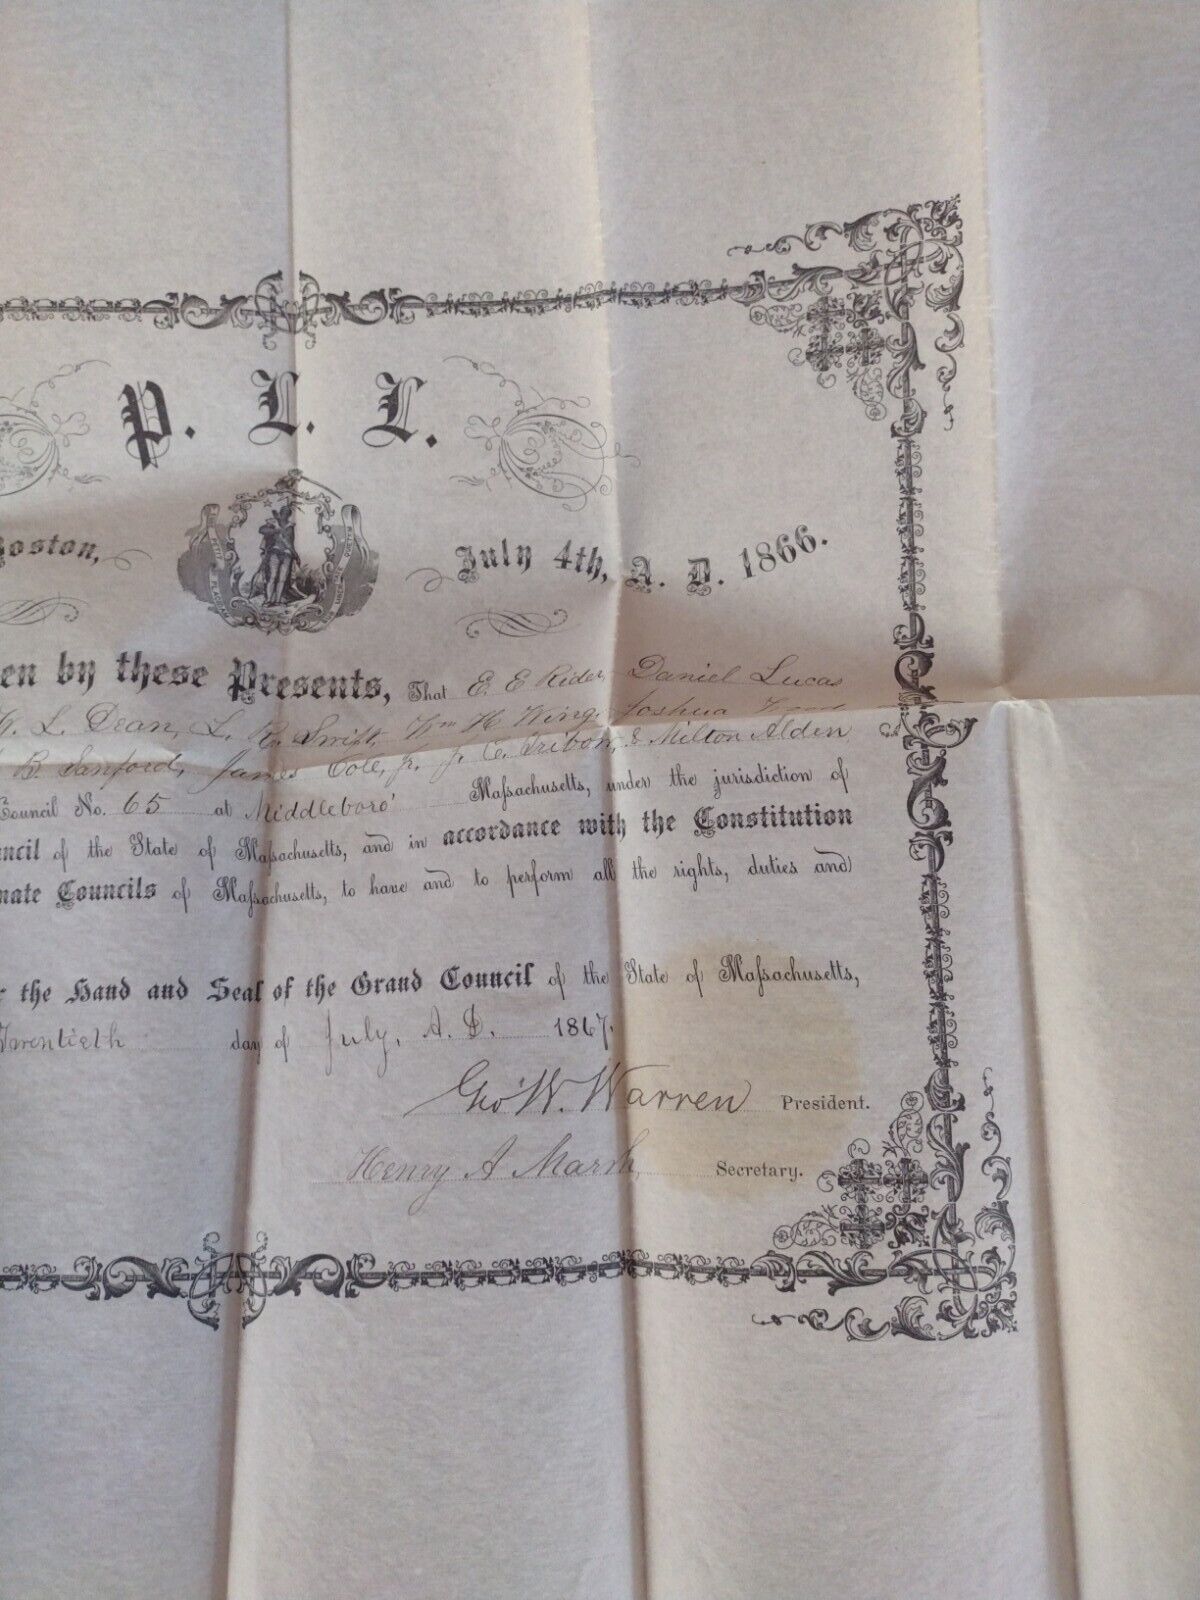 P. L. L.
Boston,
July 4th, A. D. 1866.
en by these Presents, That E. E Rider, Daniel Lucas
L. Dean, L. R. Swift, Wm H. Wing, Joshua Wood
B. Sanford, James Cole, Jr. J. C. Tribon, & Milton Alden
Council No. 65 at Middleboro' Massachusetts, under the jurisdiction of
ncil of the State of Massachusetts, and in accordance with the Constitution
nate Councils of Massachusetts, to have and to perform all the rights, duties and
r the Hand and Seal of the Grand Council of the State of Massachusetts,
Twentieth day of July, A. D. 1867.
Geo W. Warren President.
Henry A Marsh, Secretary.